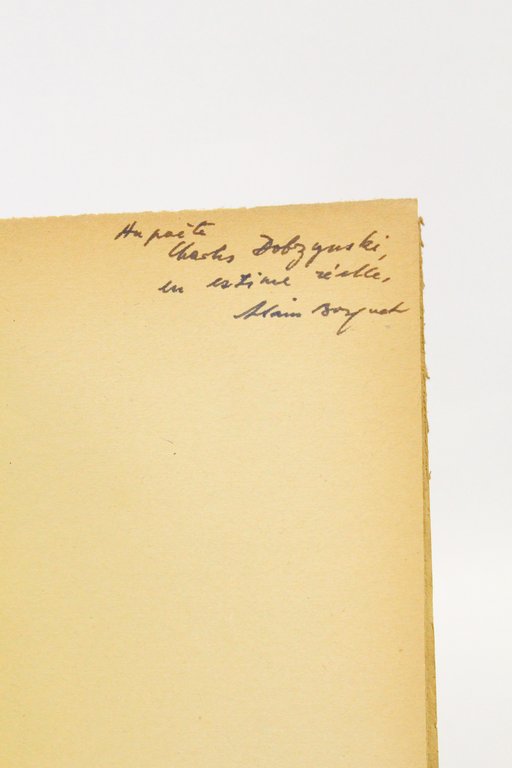 Au poète
Charles Dobzynski,
en estime réelle,
Alain Bosquet